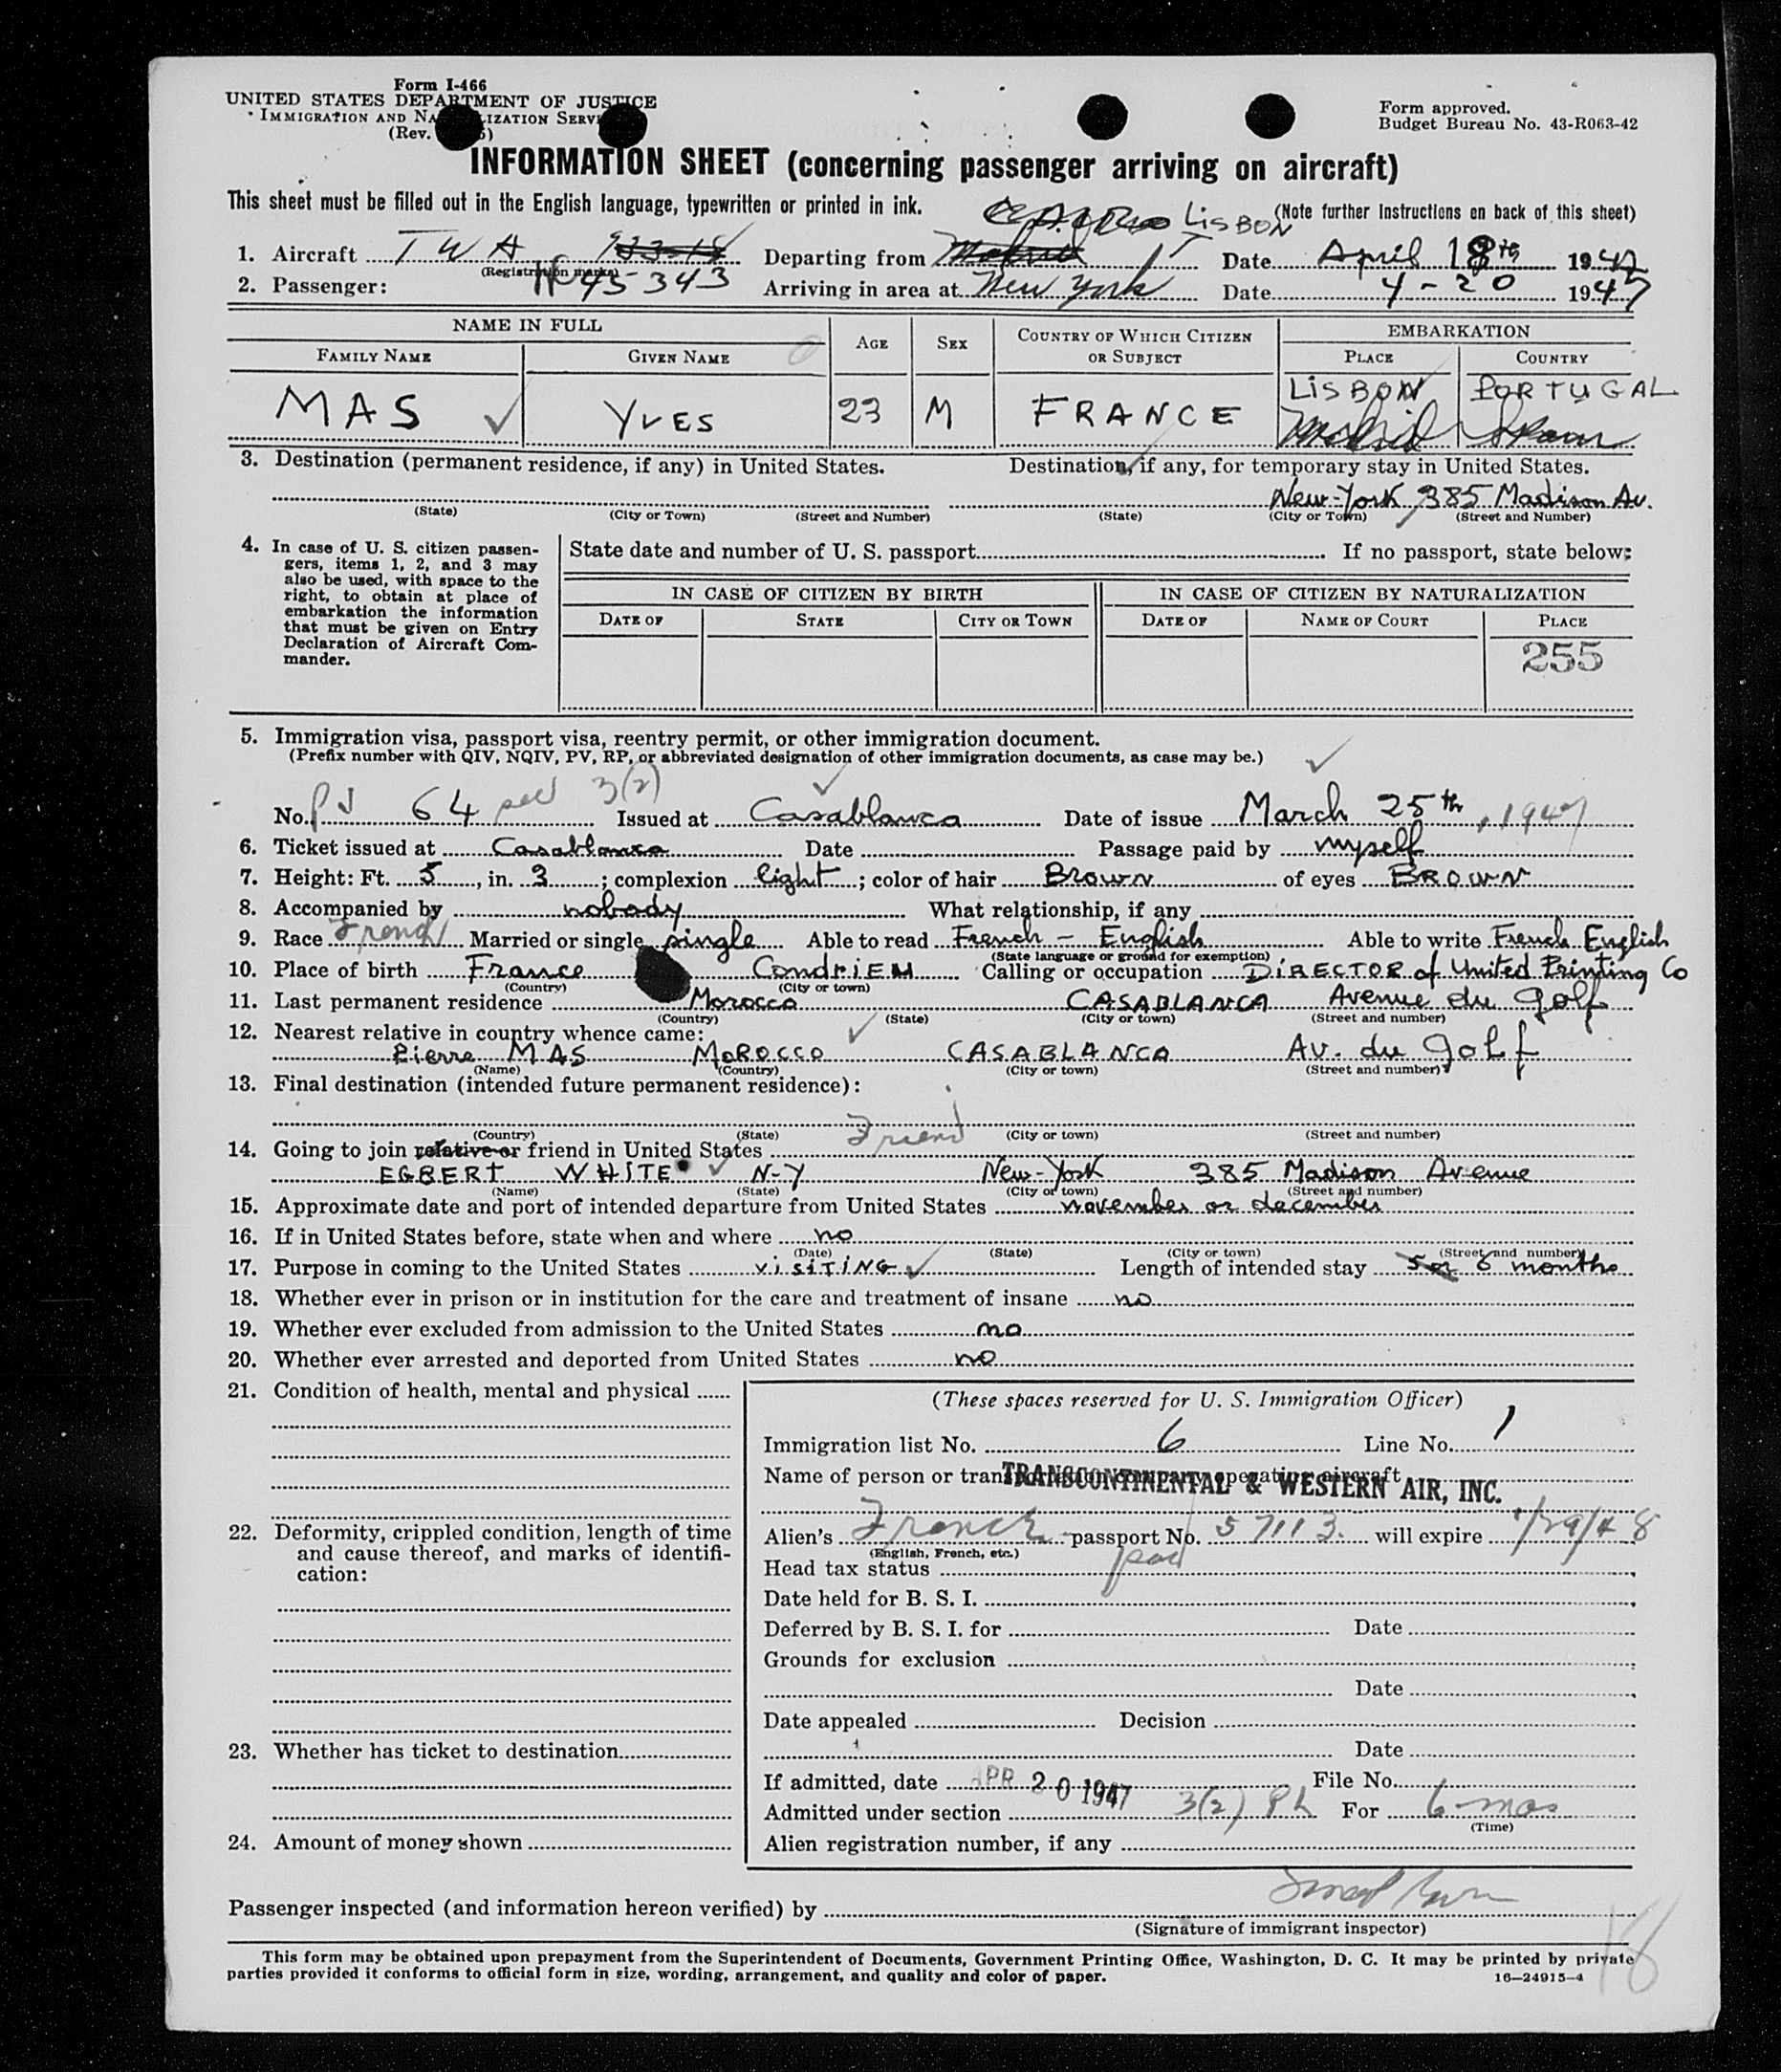 Form I-466
UNITED STATES DEPARTMENT OF JUSTICE
IMMIGRATION AND NA LIZATION SERVI
(Rev. )
Form approved.
Budget Bureau No. 43-R063-42
INFORMATION SHEET (concerning passenger arriving on aircraft)
This sheet must be filled out in the English language, typewritten or printed in ink.
LISBON
(Note further instructions on back of this sheet)
1. Aircraft TWA Departing from Date April 18th 1947
(Registration marks)
2. Passenger: 45-343 Arriving in area at New York Date 4-20 1947
NAME IN FULL AGE SEX COUNTRY OF WHICH CITIZEN OR SUBJECT EMBARKATION
FAMILY NAME GIVEN NAME PLACE COUNTRY
LISBON PORTUGAL
MAS YVES 23 M FRANCE Madrid
3. Destination (permanent residence, if any) in United States. Destination, if any, for temporary stay in United States.
New-York 385 Madison Av.
(State) (City or Town) (Street and Number) (State) (City or Town) (Street and Number)
4. In case of U. S. citizen passen-
gers, items 1, 2, and 3 may
also be used, with space to the
right, to obtain at place of
embarkation the information
that must be given on Entry
Declaration of Aircraft Com-
mander.
State date and number of U. S. passport If no passport, state below:
IN CASE OF CITIZEN BY BIRTH IN CASE OF CITIZEN BY NATURALIZATION
DATE OF STATE CITY OR TOWN DATE OF NAME OF COURT PLACE
255
5. Immigration visa, passport visa, reentry permit, or other immigration document.
(Prefix number with QIV, NQIV, PV, RP, or abbreviated designation of other immigration documents, as case may be.)
3(2)
No. PV 64 Issued at Casablanca Date of issue March 25th, 1947
6. Ticket issued at Casablanca Date Passage paid by myself
7. Height: Ft. 5, in. 3; complexion light; color of hair BROWN of eyes BROWN
8. Accompanied by nobody What relationship, if any
9. Race French Married or single single Able to read French - English Able to write French English
(State language or ground for exemption)
10. Place of birth France CONDRIEU Calling or occupation DIRECTOR of United Printing Co
(Country) (City or town)
11. Last permanent residence Morocco CASABLANCA Avenue du golf
(Country) (State) (City or town) (Street and number)
12. Nearest relative in country whence came:
Pierre MAS MOROCCO CASABLANCA Av. du golf
(Name) (Country) (City or town) (Street and number)
13. Final destination (intended future permanent residence):
(Country) (State) (City or town) (Street and number)
14. Going to join relative or friend in United States Friend
EGBERT WHITE N-Y New-York 385 Madison Avenue
(Name) (State) (City or town) (Street and number)
15. Approximate date and port of intended departure from United States november or december
16. If in United States before, state when and where no
(Date) (State) (City or town) (Street and number)
17. Purpose in coming to the United States visiting Length of intended stay 5 or 6 months
18. Whether ever in prison or in institution for the care and treatment of insane no
19. Whether ever excluded from admission to the United States no
20. Whether ever arrested and deported from United States no
21. Condition of health, mental and physical
22. Deformity, crippled condition, length of time
and cause thereof, and marks of identifi-
cation:
23. Whether has ticket to destination
24. Amount of money shown
(These spaces reserved for U. S. Immigration Officer)
Immigration list No. 6 Line No. 1
Name of person or transportation company operating aircraft
TRANSCONTINENTAL & WESTERN AIR, INC.
Alien's French passport No. 57113 will expire 1/29/48
(English, French, etc.)
Head tax status pd
Date held for B. S. I.
Deferred by B. S. I. for Date
Grounds for exclusion
Date
Date appealed Decision
Date
If admitted, date APR 20 1947 File No.
Admitted under section 3(2) For 6 mos
(Time)
Alien registration number, if any
Passenger inspected (and information hereon verified) by
(Signature of immigrant inspector)
This form may be obtained upon prepayment from the Superintendent of Documents, Government Printing Office, Washington, D. C. It may be printed by private
parties provided it conforms to official form in size, wording, arrangement, and quality and color of paper.
16—24915-4
18